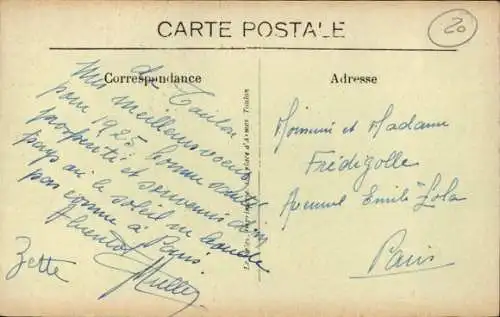 CARTE POSTALE
20
Correspondance
Adresse
de Toulon
Mes meilleurs voeux
pour 1925 bonne santé
prospérité et souvenir d'un
pays où le soleil ne boude
pas comme à Paris.
Zette
Monsieur et Madame
Frédigolle
Avenue Emile "Lola
Paris